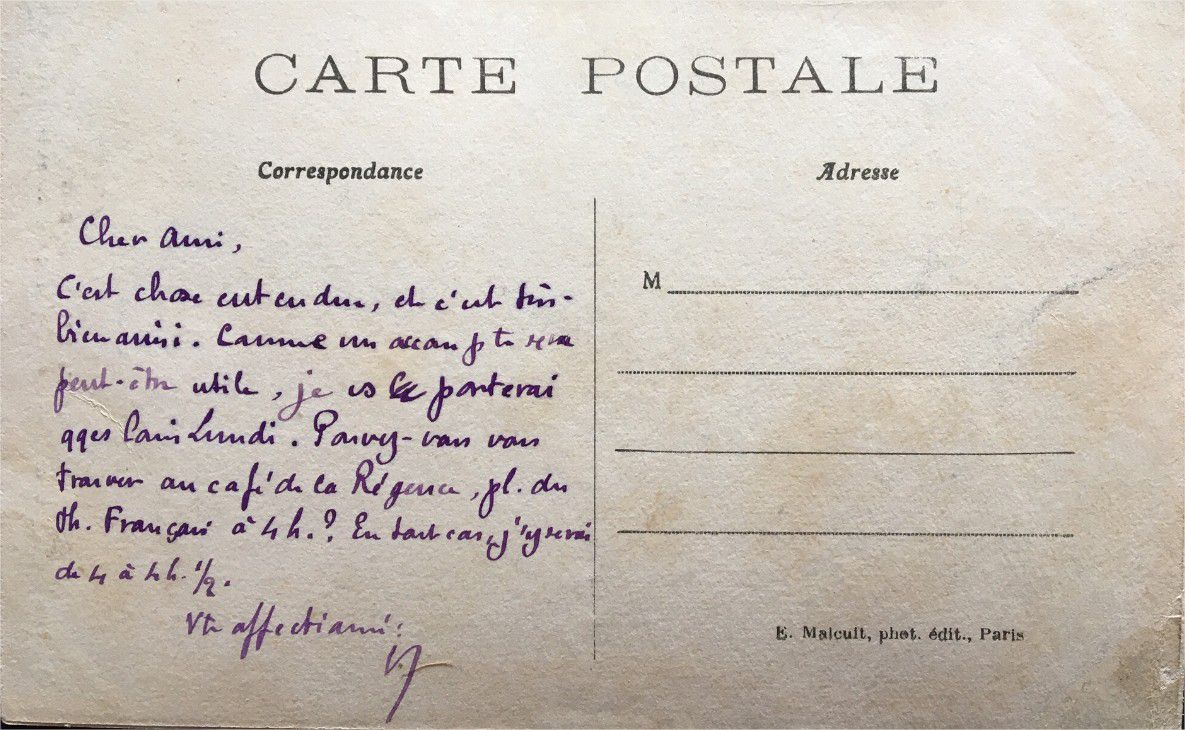 CARTE POSTALE
Correspondance
Adresse
Cher ami,
C'est chose entendue, et c'est très-
bien ainsi. Comme un acompte sera
peut-être utile, je vs porterai
qqes louis Lundi. Pouvez-vous vous
trouver au café de la Régence, pl. du
th. Français à 4 h.? En tout cas, j'y serai
de 4 à 4h. 1/2.
Vtr affectionné:
M
E. Malcuit, phot. édit., Paris